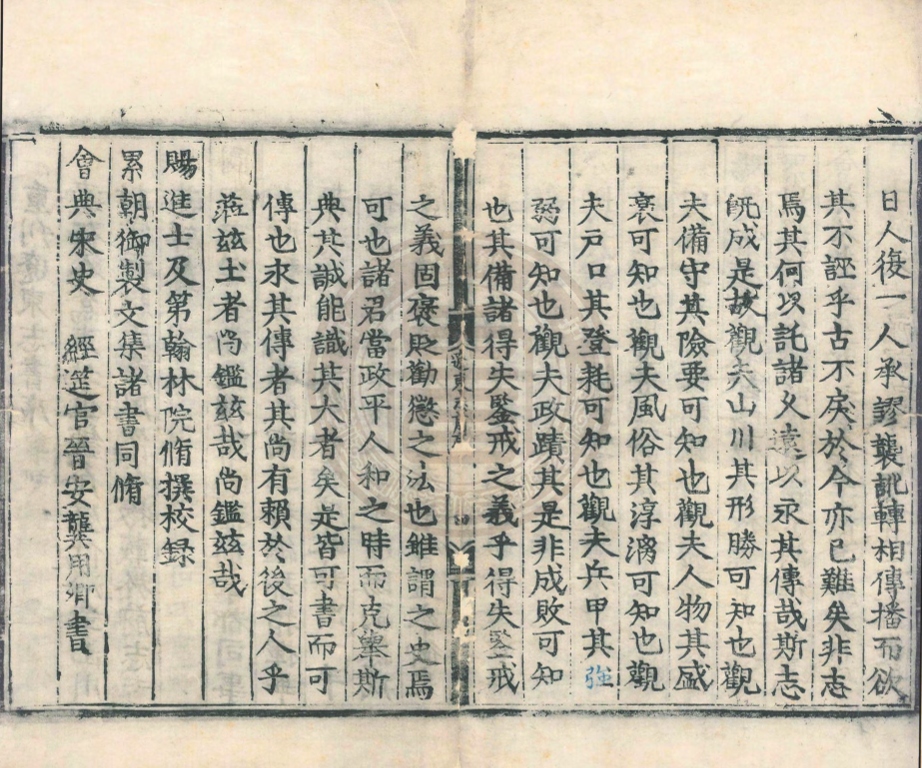 日人復一人承謬襲訛轉相傳播而欲
其不誣乎古不戾於今亦已難矣非志
焉其何以託諸久遠以永其傳哉斯志
旣成是故觀夫山川其形勝可知也觀
夫備守其險要可知也觀夫人物其盛
衰可知也觀夫風俗其淳漓可知也觀
夫戶口其登耗可知也觀夫兵甲其強
弱可知也觀夫政蹟其是非成敗可知
也其備諸得失鑒戒之義乎得失鑒戒
之義固褒貶勸懲之法也雖謂之史焉
可也諸君當政平人和之時而克舉斯
典其誠能識其大者矣是皆可書而可
傳也求其傳者其尚有賴於後之人乎
蒞玆土者尚鑑玆哉尚鑑玆哉
賜進士及第翰林院脩撰校錄
累朝御製文集諸書同脩
會典宋史 經筵官晉安龔用卿書